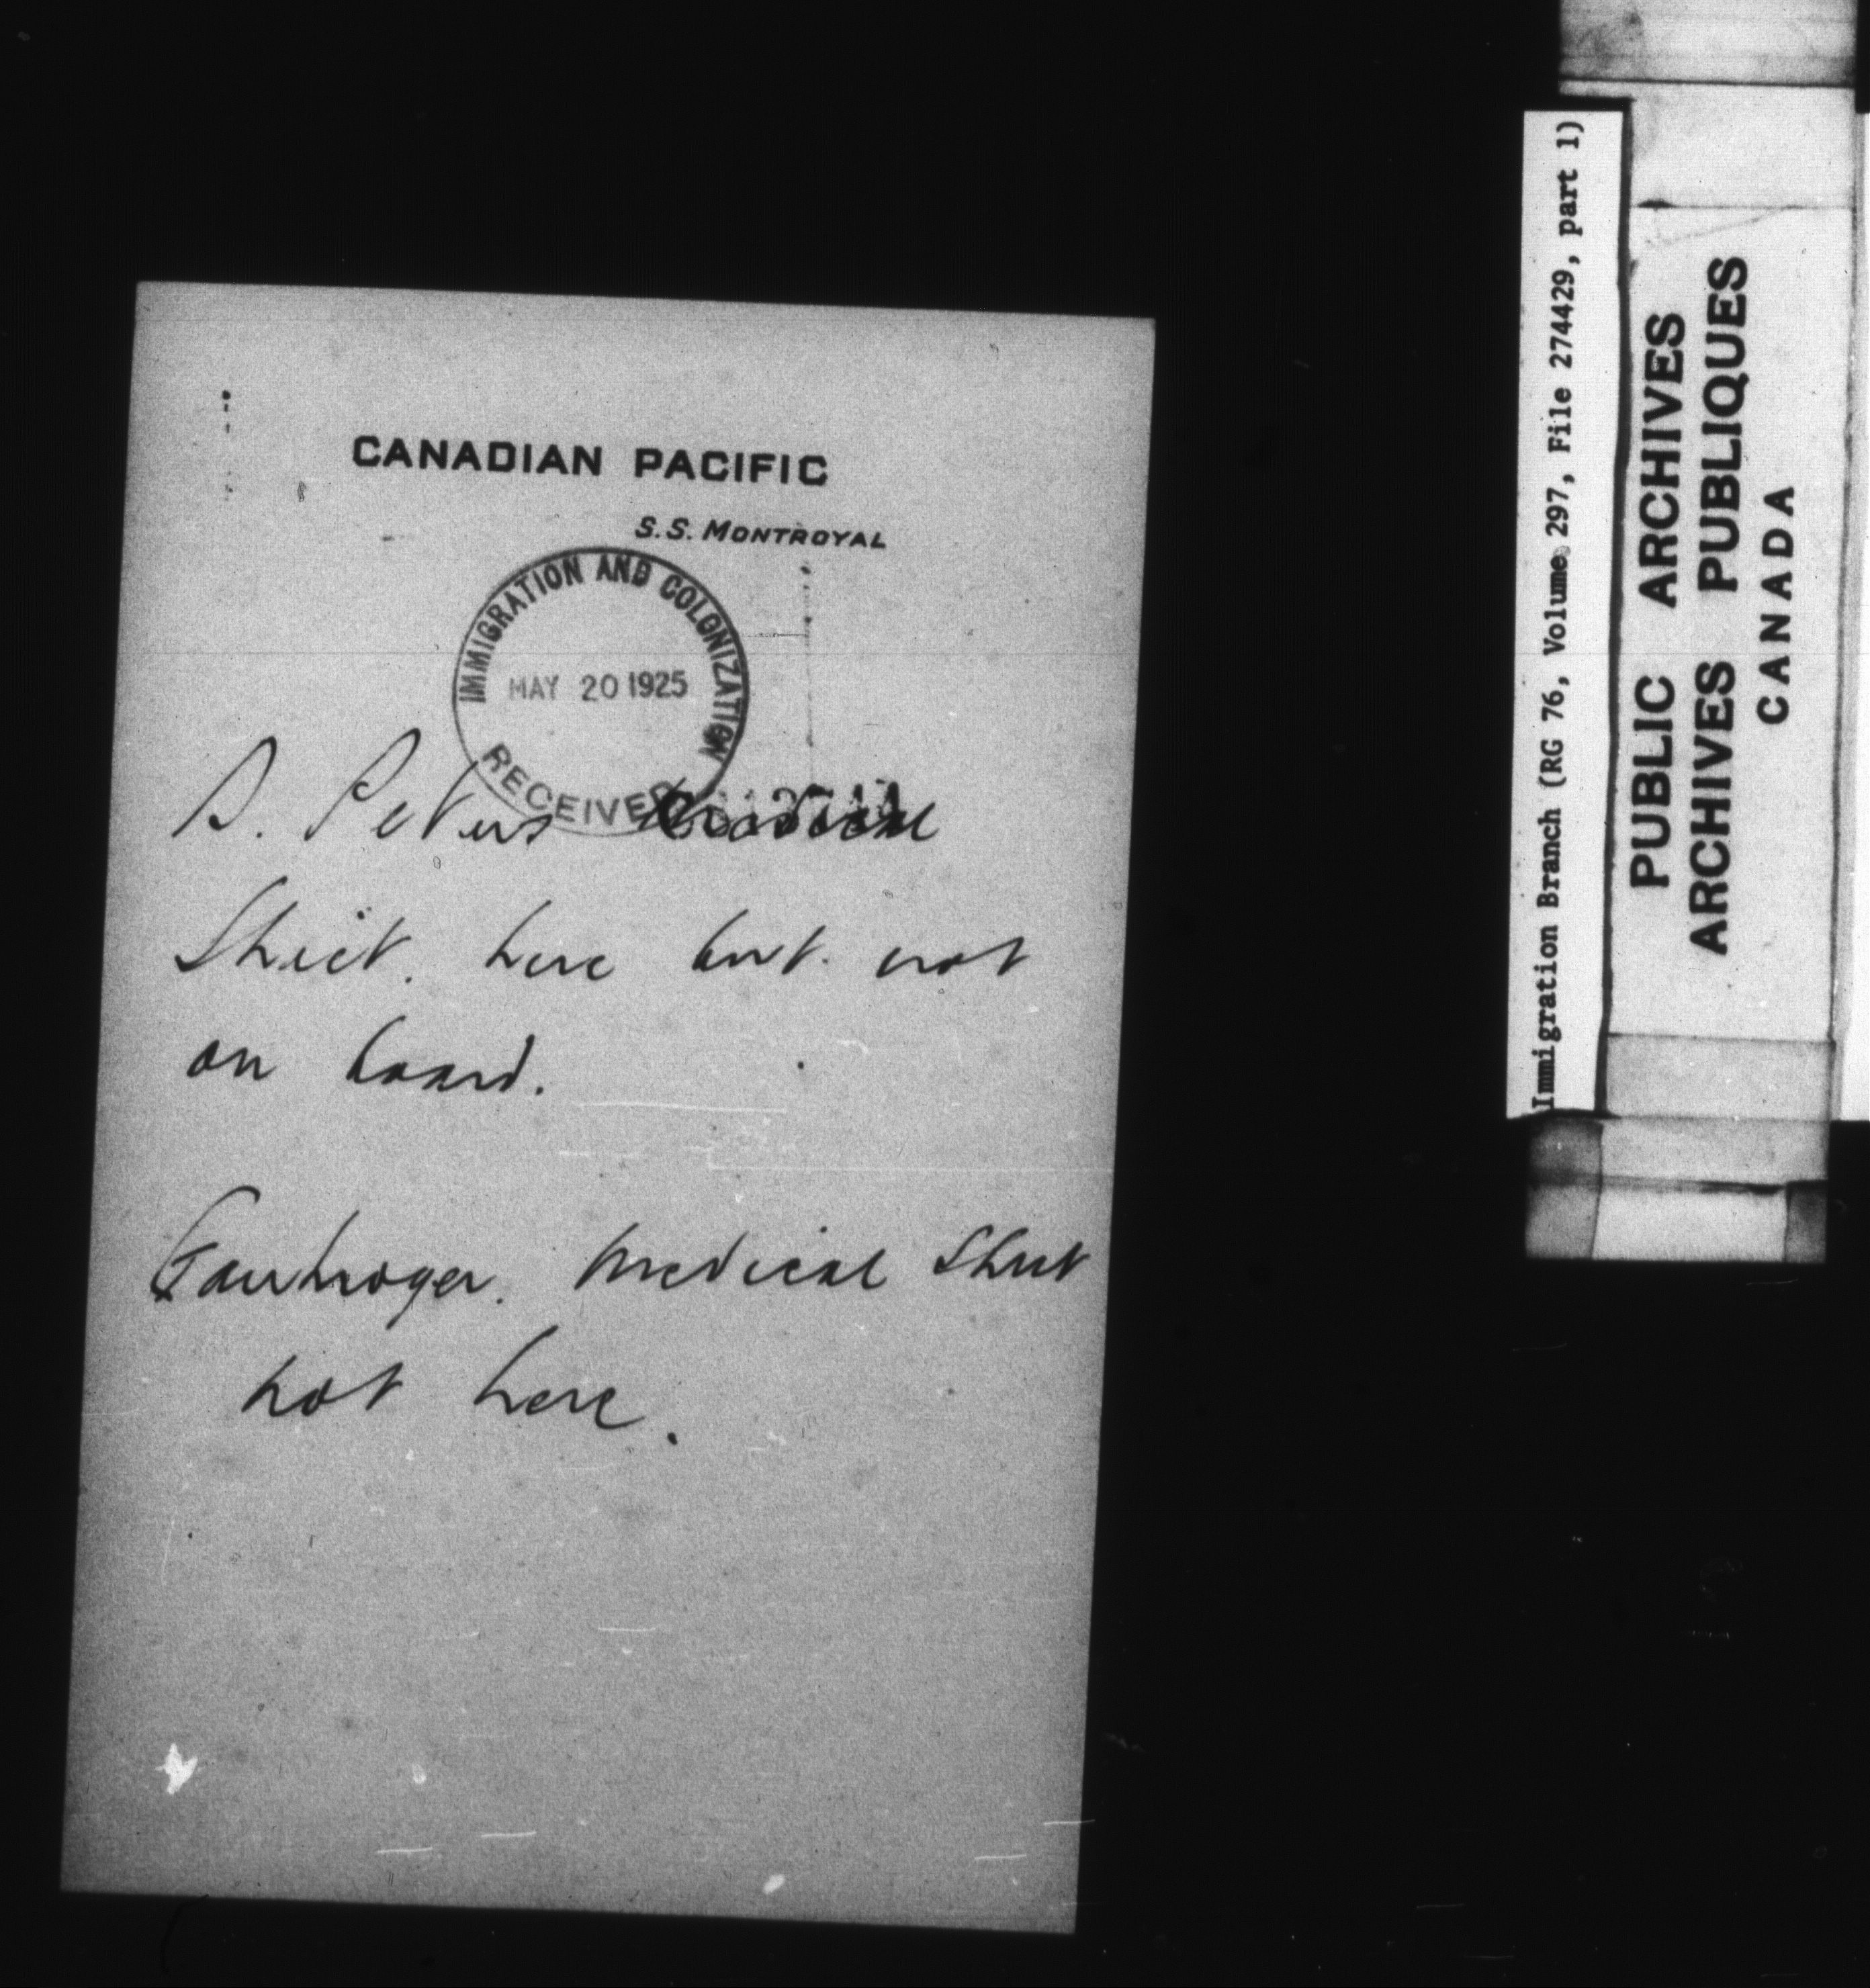 CANADIAN PACIFIC
S.S. MONTROYAL
IMMIGRATION AND COLONIZATION
MAY 20 1925
RECEIVED
D. Peters
Sheet. here but not
on board.
Medical Sheet
not here.
Immigration Branch (RG 76, Volume 297, File 274429, part 1)
PUBLIC ARCHIVES
ARCHIVES PUBLIQUES
CANADA